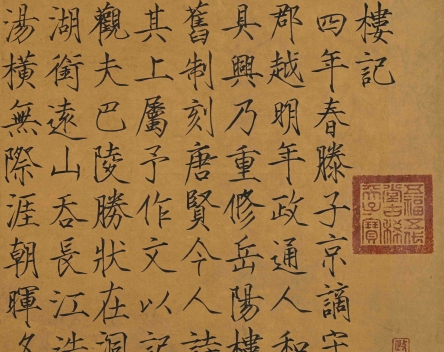 樓記
四年春滕子京謫守
郡越明年政通人和
具興乃重修岳陽樓
舊制刻唐賢今人詩
其上屬予作文以記
觀夫巴陵勝狀在洞
湖銜遠山吞長江浩
湯橫無際涯朝暉夕
五福五代堂古稀天子寶